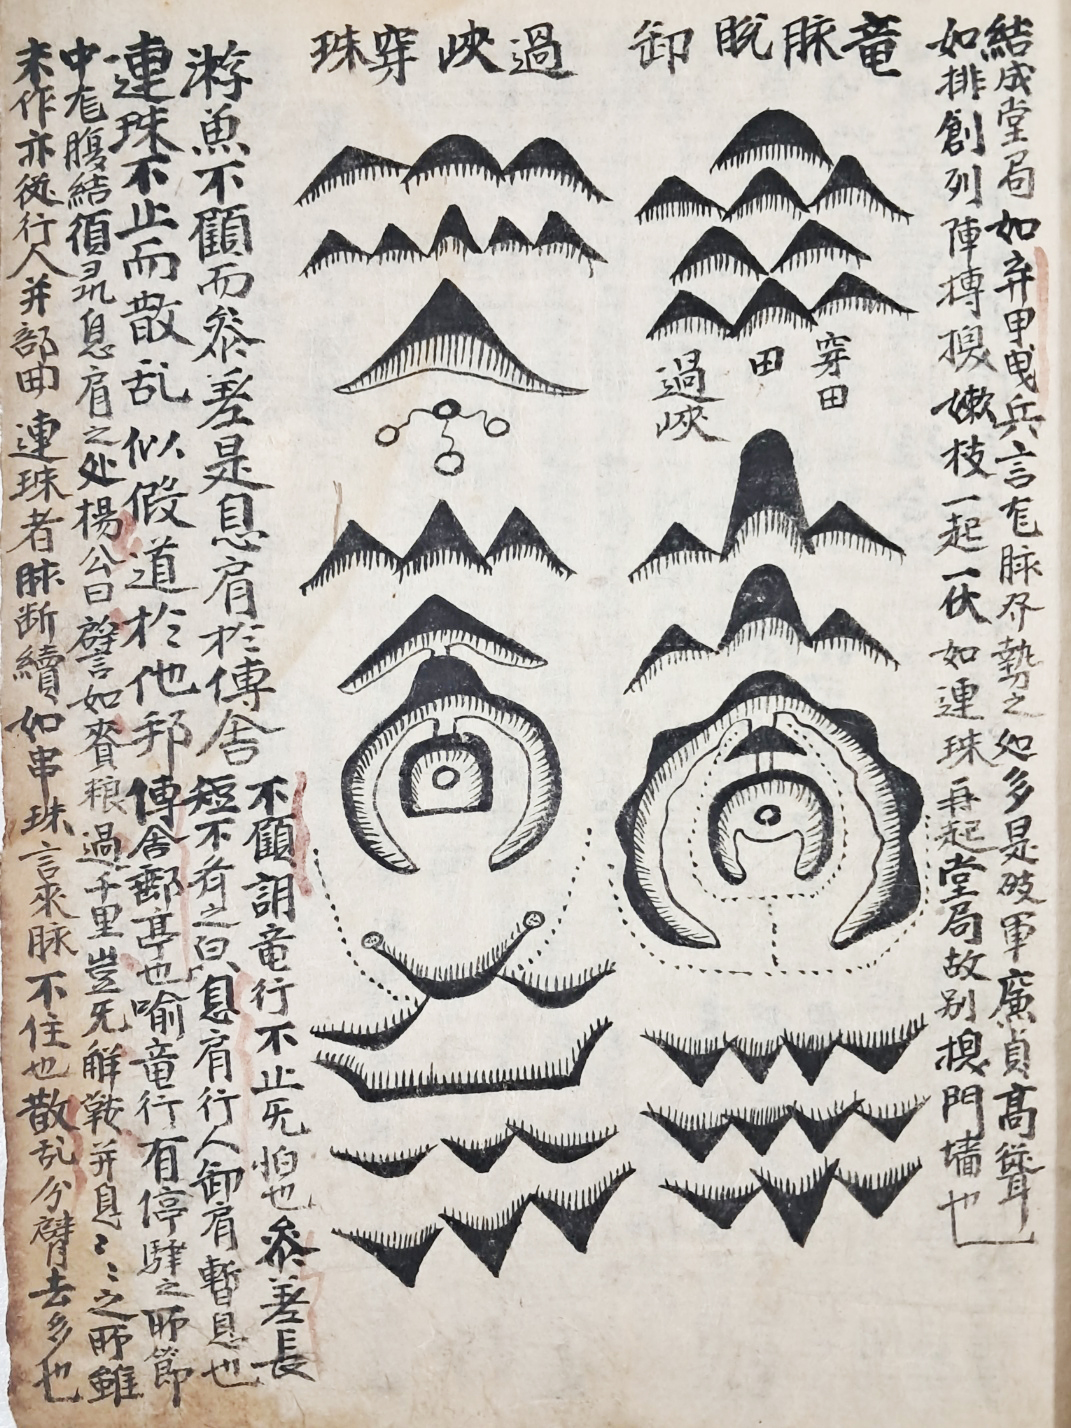 結成堂局如弃甲曳兵言尨脉分勢之如多是破軍廉貞高聳
如排創列陣摶換嫰枝一起一伏如連珠再起堂局故别換門墙也
竜脉脫卸
過峽穿珠
穿田
田
過峽
游魚不顧而叅差是息肩於傳舍
不顧謂竜行不止无怕也叅差長
短不有之皃息肩行人卸肩暫息也
連珠不止而散乱似假道於他邦
傳舍郵亭也喻竜行有停驛之所節
中尨腹結須尋息肩之处楊公曰譬如賫粮過千里豈无觧鞍并息〻之所雖
未作亦從行人并部曲連珠者脉断續如串珠言來脉不住也散乱分臂去多也